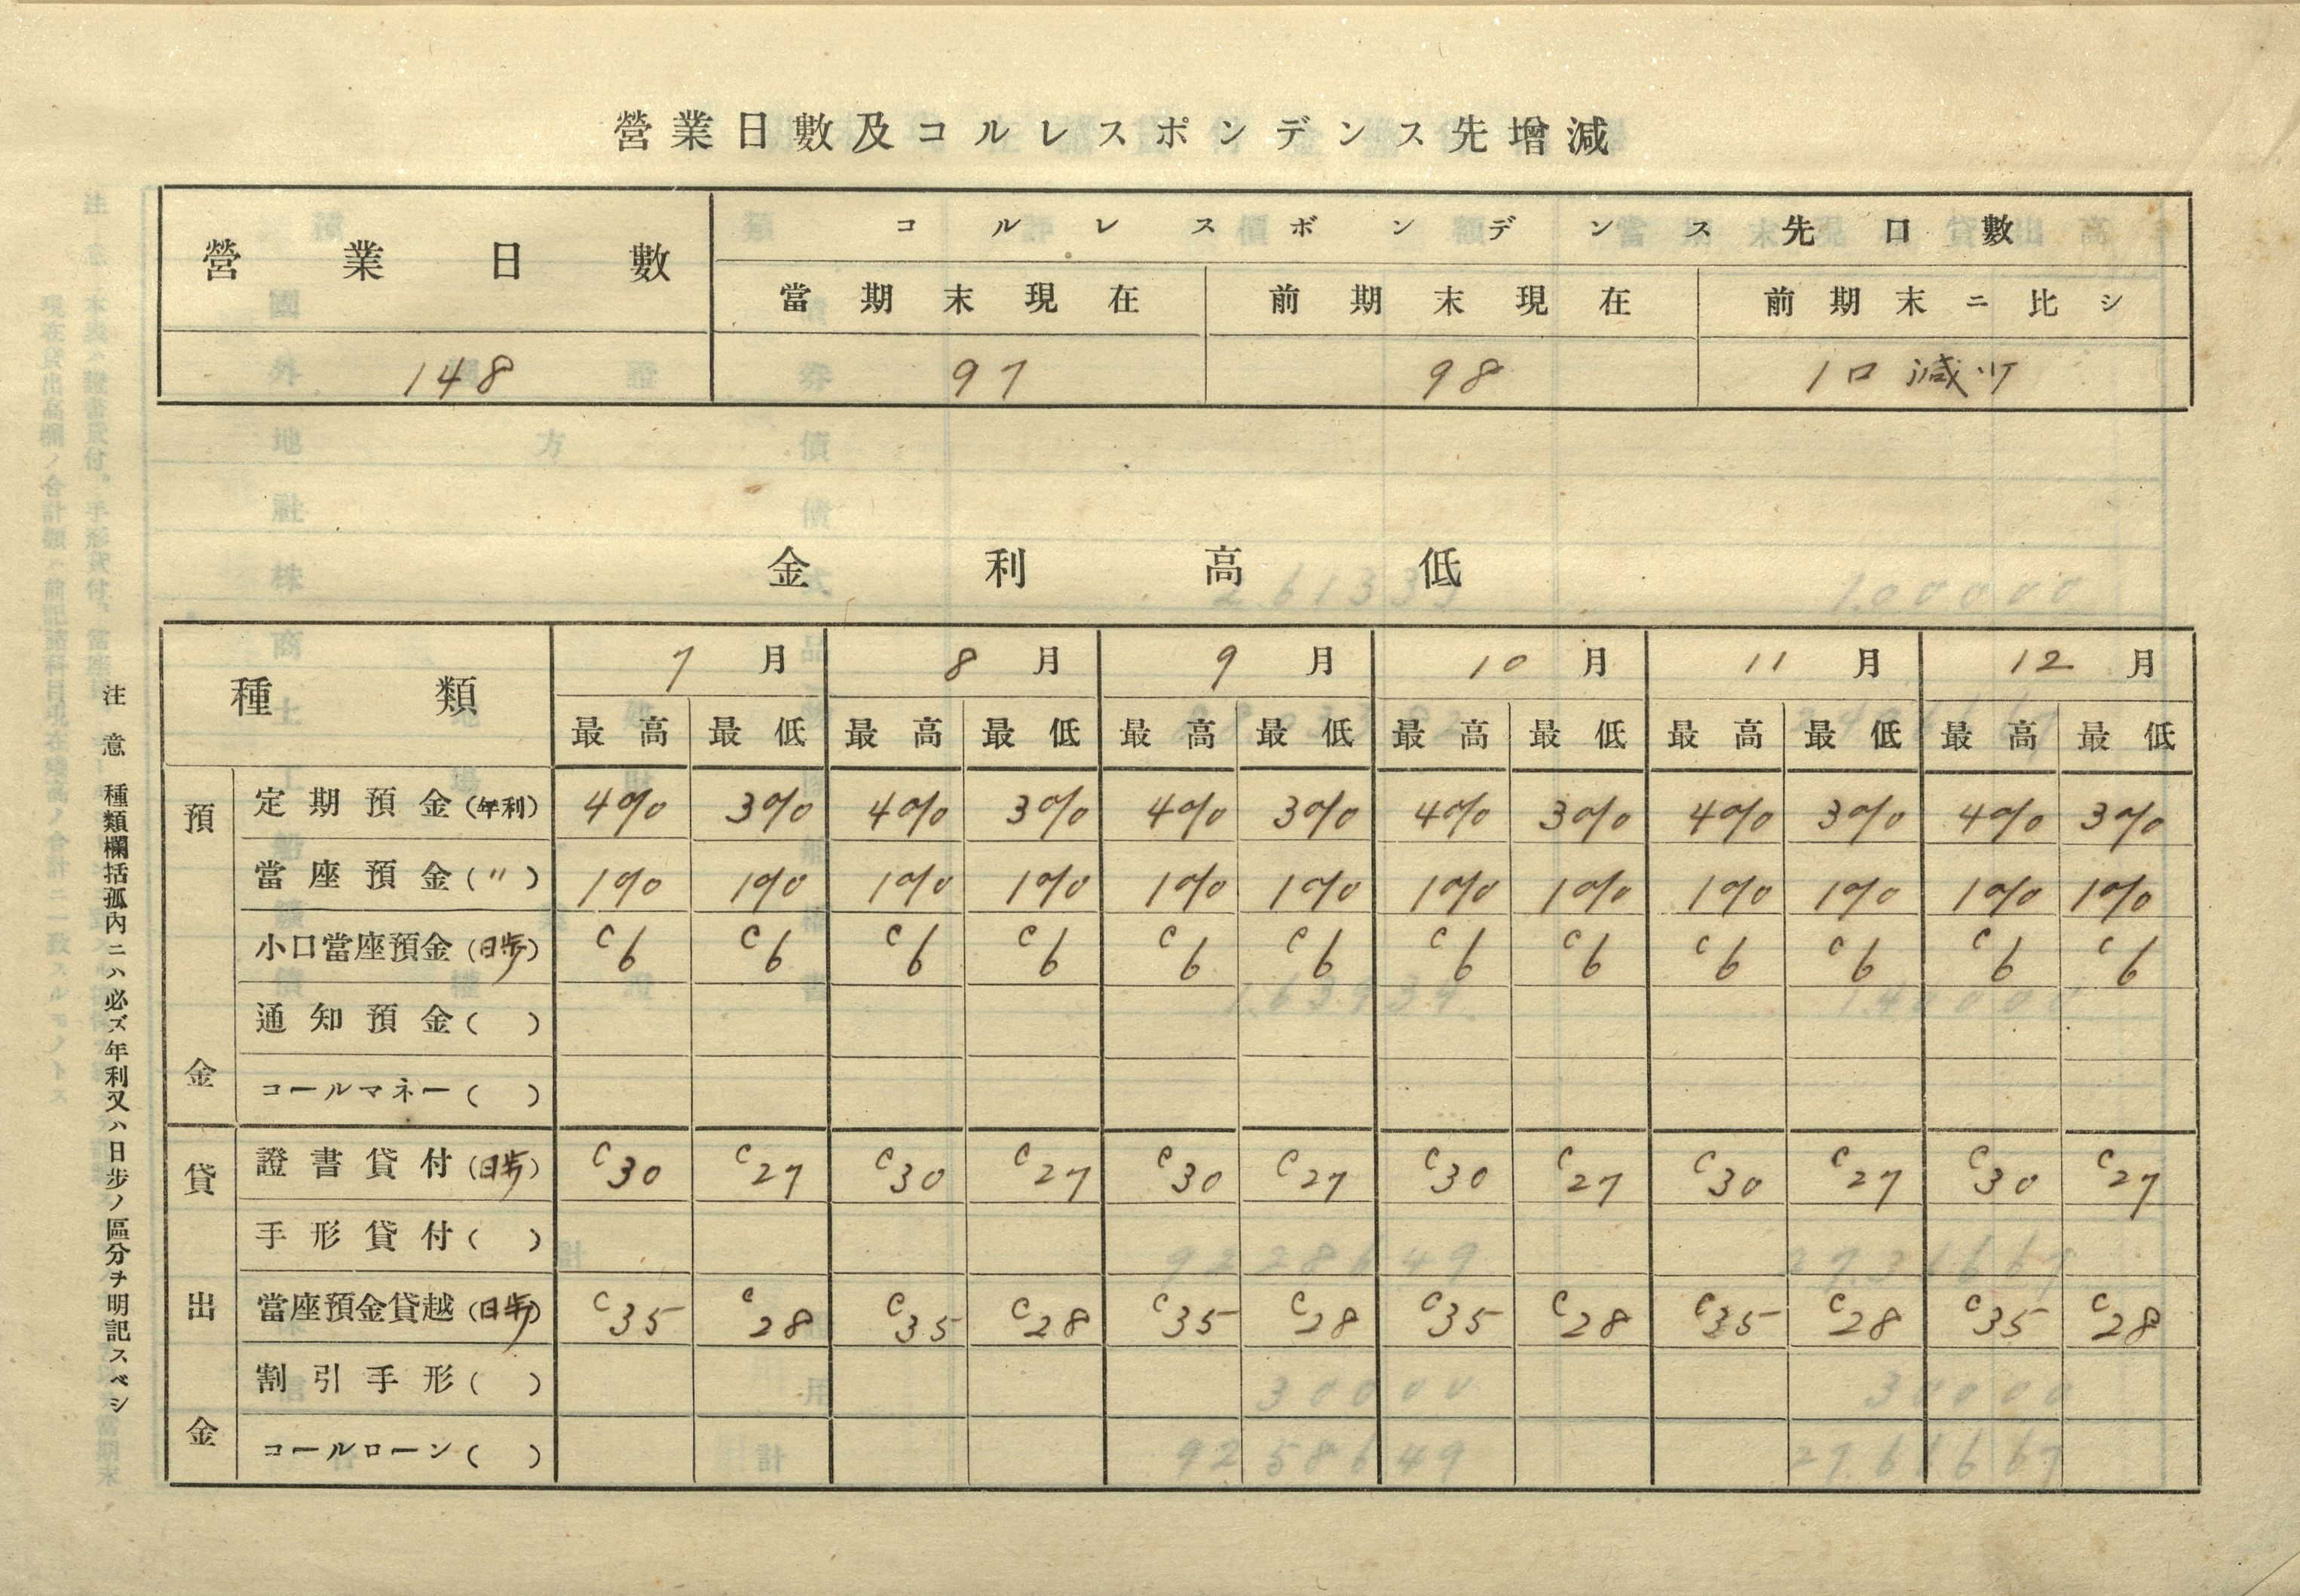 營業日數及コルレスポンデンス先增減
營業日數 コルレスボンデンス先口數
當期末現在 前期末現在 前期末ニ比シ
148 97 98 1口減ツ
金利高低
種類 7月 8月 9月 10月 11月 12月
最高 最低 最高 最低 最高 最低 最高 最低 最高 最低 最高 最低
預金
定期預金(年利) 4% 3% 4% 3% 4% 3% 4% 3% 4% 3% 4% 3%
當座預金(〃) 1% 1% 1% 1% 1% 1% 1% 1% 1% 1% 1% 1%
小口當座預金(日歩) c6 c6 c6 c6 c6 c6 c6 c6 c6 c6 c6 c6
通知預金( )
コールマネー( )
貸出金
證書貸付(日歩) c30 c27 c30 c27 c30 c27 c30 c27 c30 c27 c30 c27
手形貸付( )
當座預金貸越(日歩) c35 c28 c35 c28 c35 c28 c35 c28 c35 c28 c35 c28
割引手形( )
コールローン( )
注意 種類欄括孤內ニハ必ズ年利又ハ日步ノ區分ヲ明記スベシ